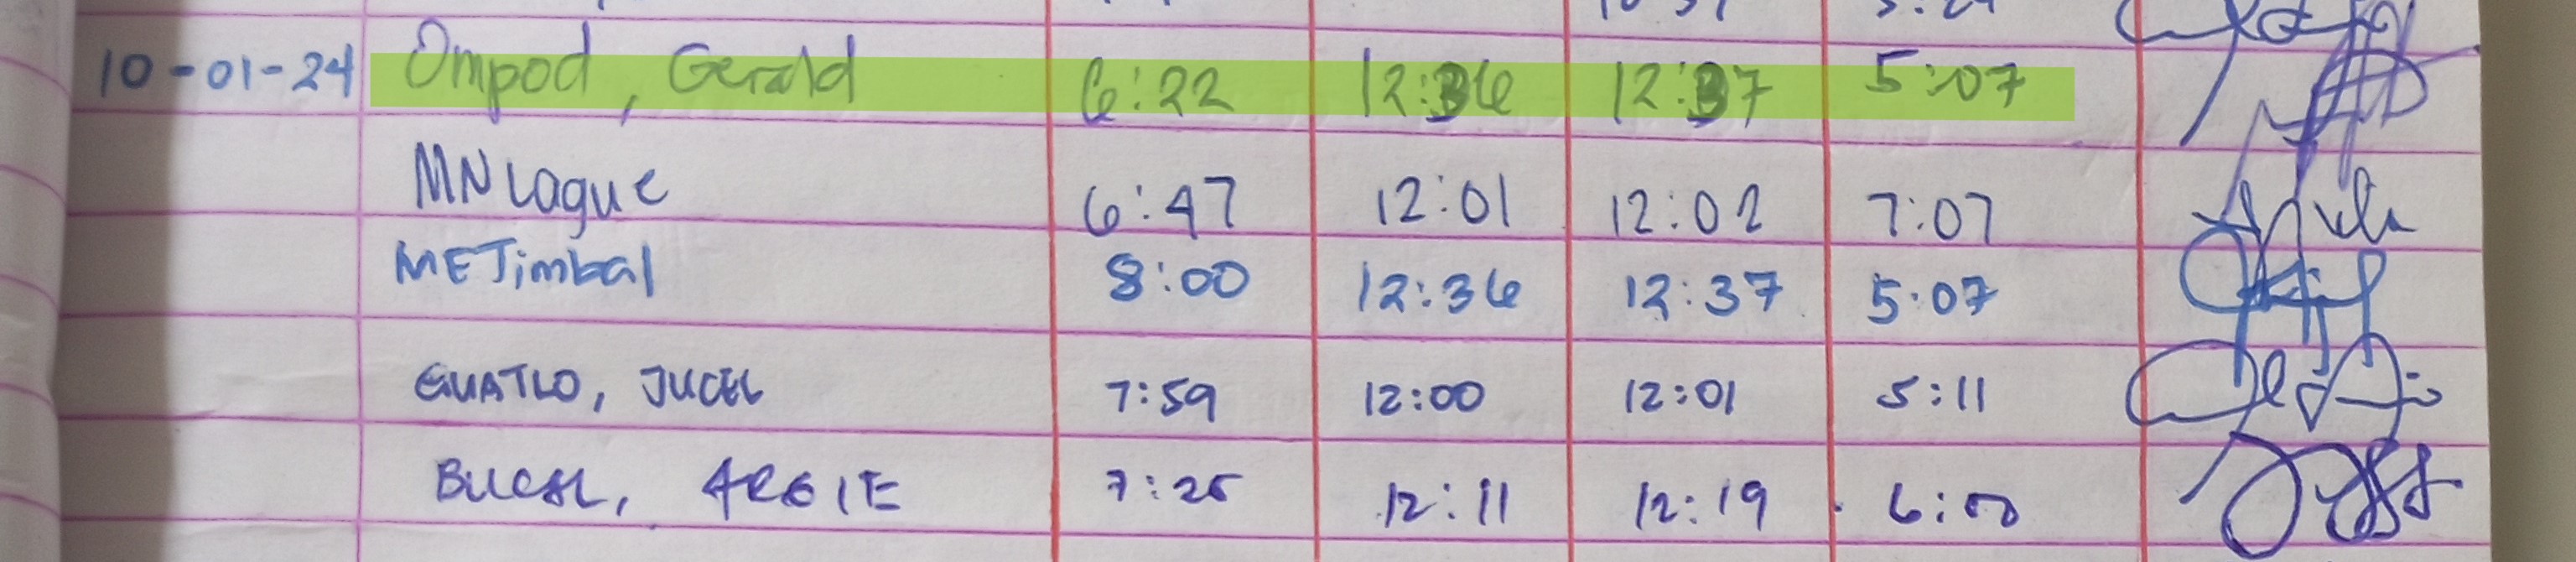 10-01-24 Ompod, Gerald 6:22 12:36 12:37 5:07
MNLague 6:47 12:01 12:02 7:07
METimbal 8:00 12:36 12:37 5:07
GUATLO, JUCEL 7:59 12:00 12:01 5:11
BUCAL, ARGIE 7:25 12:11 12:19 6:00